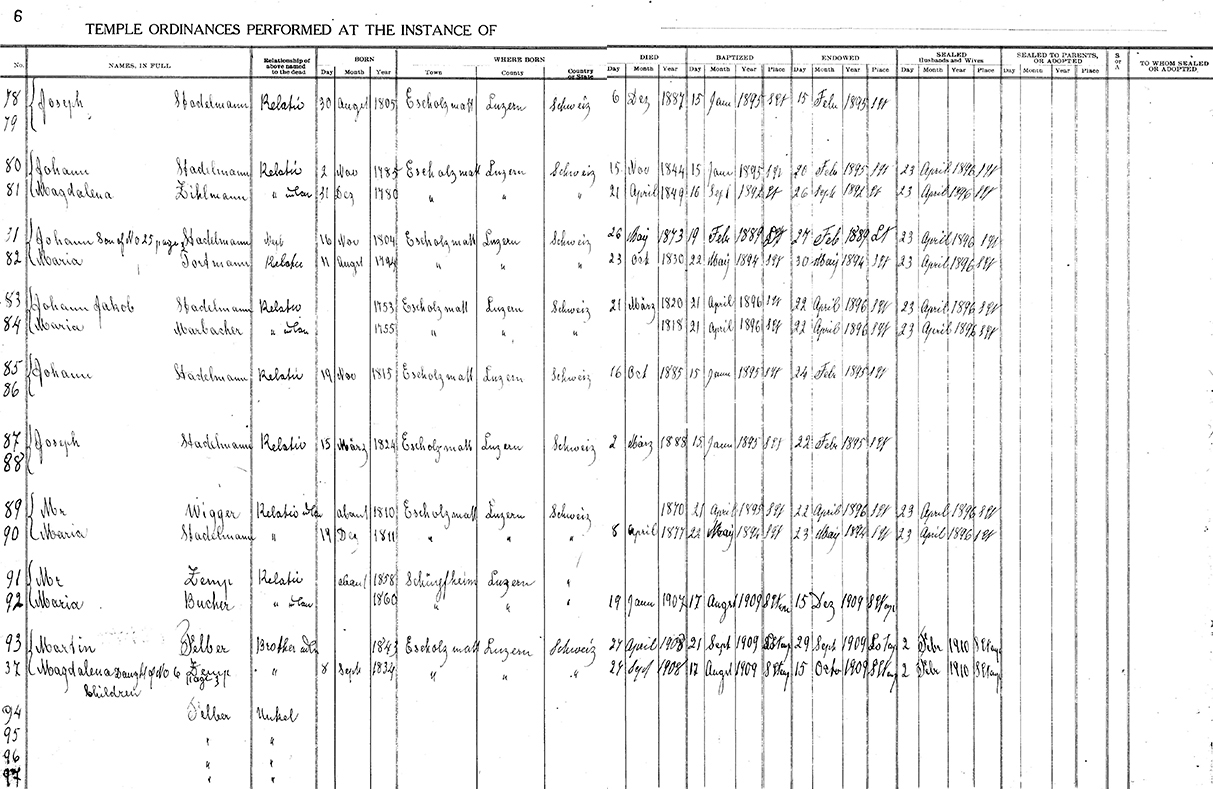 6
TEMPLE ORDINANCES PERFORMED AT THE INSTANCE OF
No. NAMES, IN FULL Relationship of above named to the dead BORN Day Month Year WHERE BORN Town County Country or State DIED Day Month Year BAPTIZED Day Month Year Place ENDOWED Day Month Year Place SEALED Husbands and Wives Day Month Year Place SEALED TO PARENTS, OR ADOPTED Day Month Year Place S or A TO WHOM SEALED OR ADOPTED
78 Joseph Stadelmann Relativ 30 August 1805 Escholzmatt Luzern Schweiz 6 Dez 1887 15 Jann 1895 15 Febr 1895
79
80 Johann Stadelmann Relativ 2 Nov 1785 Escholzmatt Luzern Schweiz 15 Nov 1844 15 Jann 1895 20 Feb 1895 23 April 1896
81 Magdalena Zihlmann " 31 Dez 1780 " " " 21 April 1849 16 Sept 1892 26 Sept 1892 23 April 1896
31 Johann Son of No 25 page Stadelmann 16 Nov 1804 Escholzmatt Luzern Schweiz 26 Maij 1873 19 Febr 1889 27 Feb 1889 23 April 1896
82 Maria Portmann Relativ 11 August 1794 " " " 23 Oct 1830 22 Maij 1894 30 Maij 1894 23 April 1896
83 Johann Jakob Stadelmann Relativ 1753 Escholzmatt Luzern Schweiz 21 März 1820 21 April 1896 22 April 1896 23 April 1896
84 Maria Marbacher " 1755 " " " 1818 21 April 1896 22 April 1896 23 April 1896
85 Johann Stadelmann Relativ 19 Nov 1815 Escholzmatt Luzern Schweiz 16 Oct 1885 15 Jann 1895 24 Febr 1895
86
87 Joseph Stadelmann Relativ 15 März 1824 Escholzmatt Luzern Schweiz 2 März 1888 15 Jann 1895 22 Febr 1895
88
89 Mr Wigger Relativ about 1810 Escholzmatt Luzern Schweiz 1870 21 April 1895 22 April 1896 23 April 1896
90 Maria Stadelmann " 19 Dez 1811 " " " 8 April 1877 22 Maij 1894 23 Maij 1894 23 April 1896
91 Mr Zemp Relativ about 1858 Schüpfheim Luzern "
92 Maria Bucher " 1860 " " " 19 Jann 1907 17 August 1909 15 Dez 1909
93 Martin Felber Brother 1843 Escholzmatt Luzern Schweiz 27 April 1908 21 Sept 1909 29 Sept 1909 2 Febr 1910
37 Magdalena Daught of No 6 page 3 Zemp " 8 Sept 1834 " " " 27 Sept 1908 17 August 1909 15 Octo 1909 2 Febr 1910
Children
94 Felber Unkel
95 " "
96 " "
97 " "